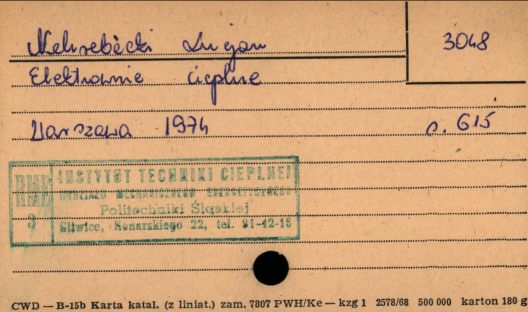 Nehrebecki Lucjan 3048
Elektrownie cieplne
Warszawa 1974 s. 615
RME
9
INSTYTUT TECHNIKI CIEPLNEJ
WYDZIAŁU MECHANICZNEGO ENERGETYCZNEGO
Politechniki Śląskiej
Gliwice, Konarskiego 22, tel. 31-42-16
CWD — B-15b Karta katal. (z liniat.) zam. 7807 PWH/Ke — kzg 1 2578/68 500 000 karton 180 g